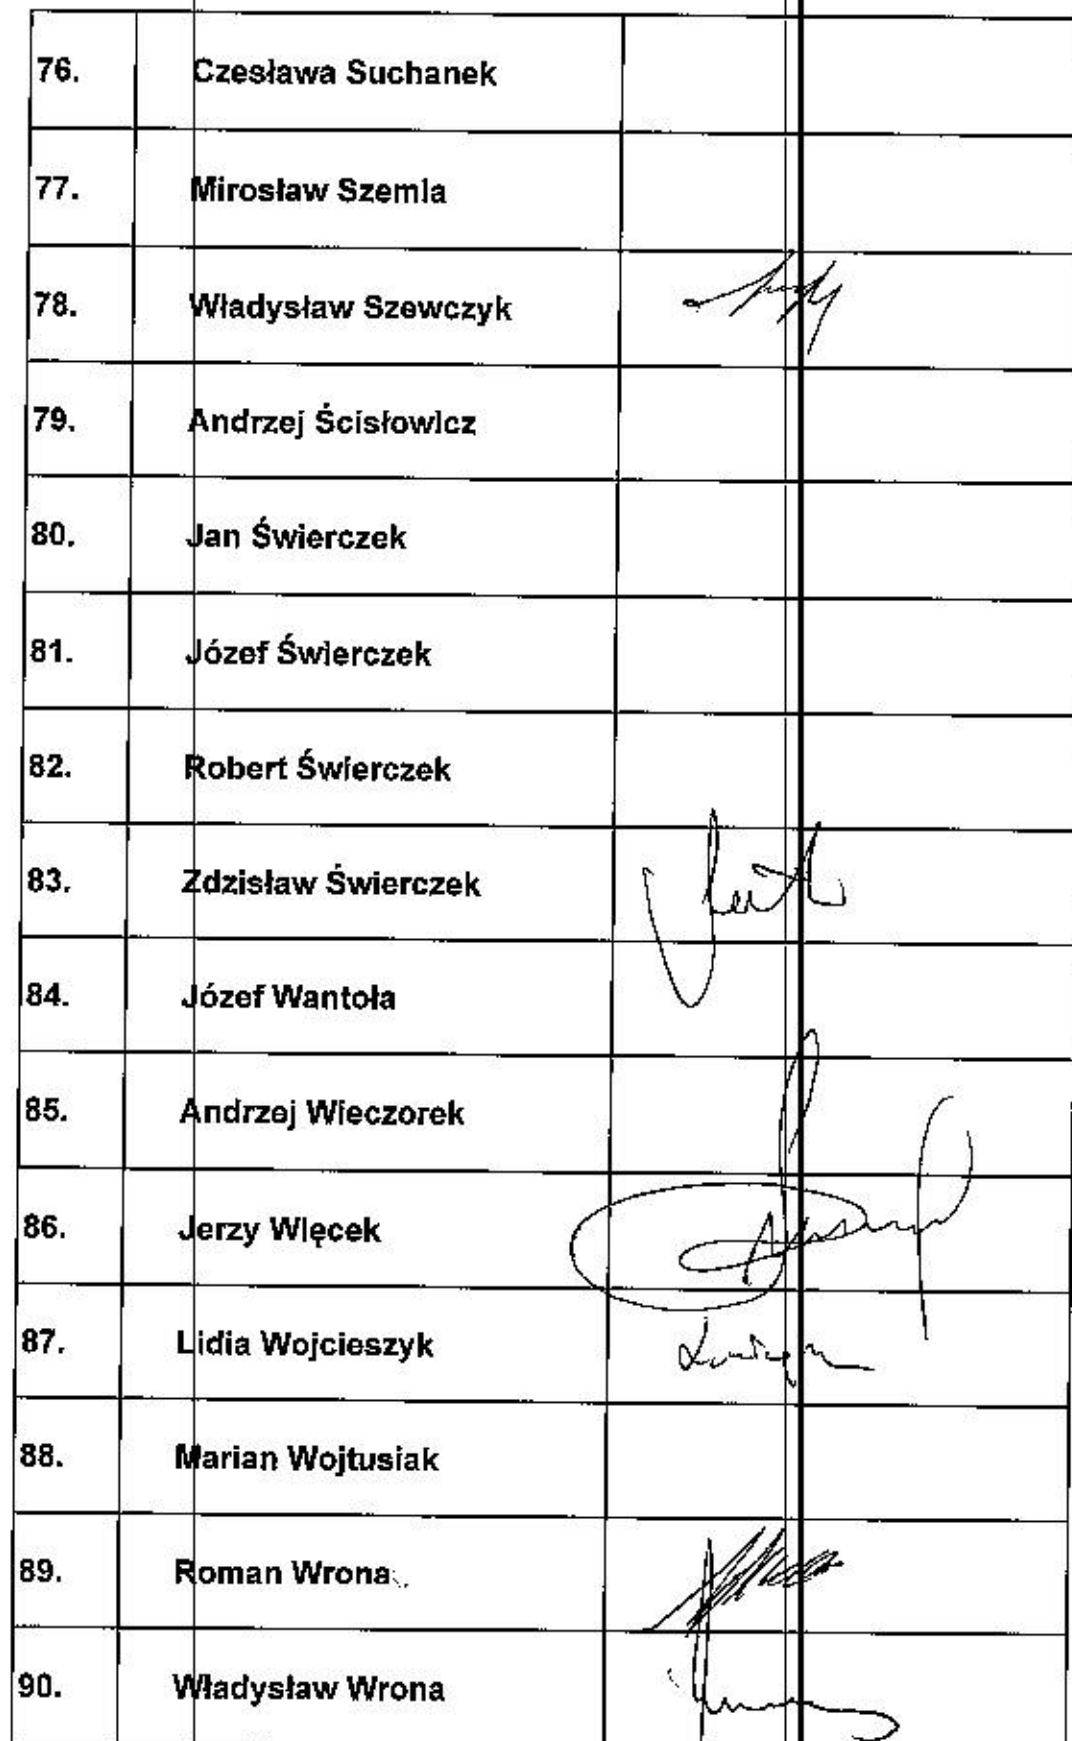 76. Czesława Suchanek
77. Mirosław Szemla
78. Władysław Szewczyk
79. Andrzej Ścisłowicz
80. Jan Świerczek
81. Józef Świerczek
82. Robert Świerczek
83. Zdzisław Świerczek
84. Józef Wantoła
85. Andrzej Wieczorek
86. Jerzy Więcek
87. Lidia Wojcieszyk
88. Marian Wojtusiak
89. Roman Wrona
90. Władysław Wrona